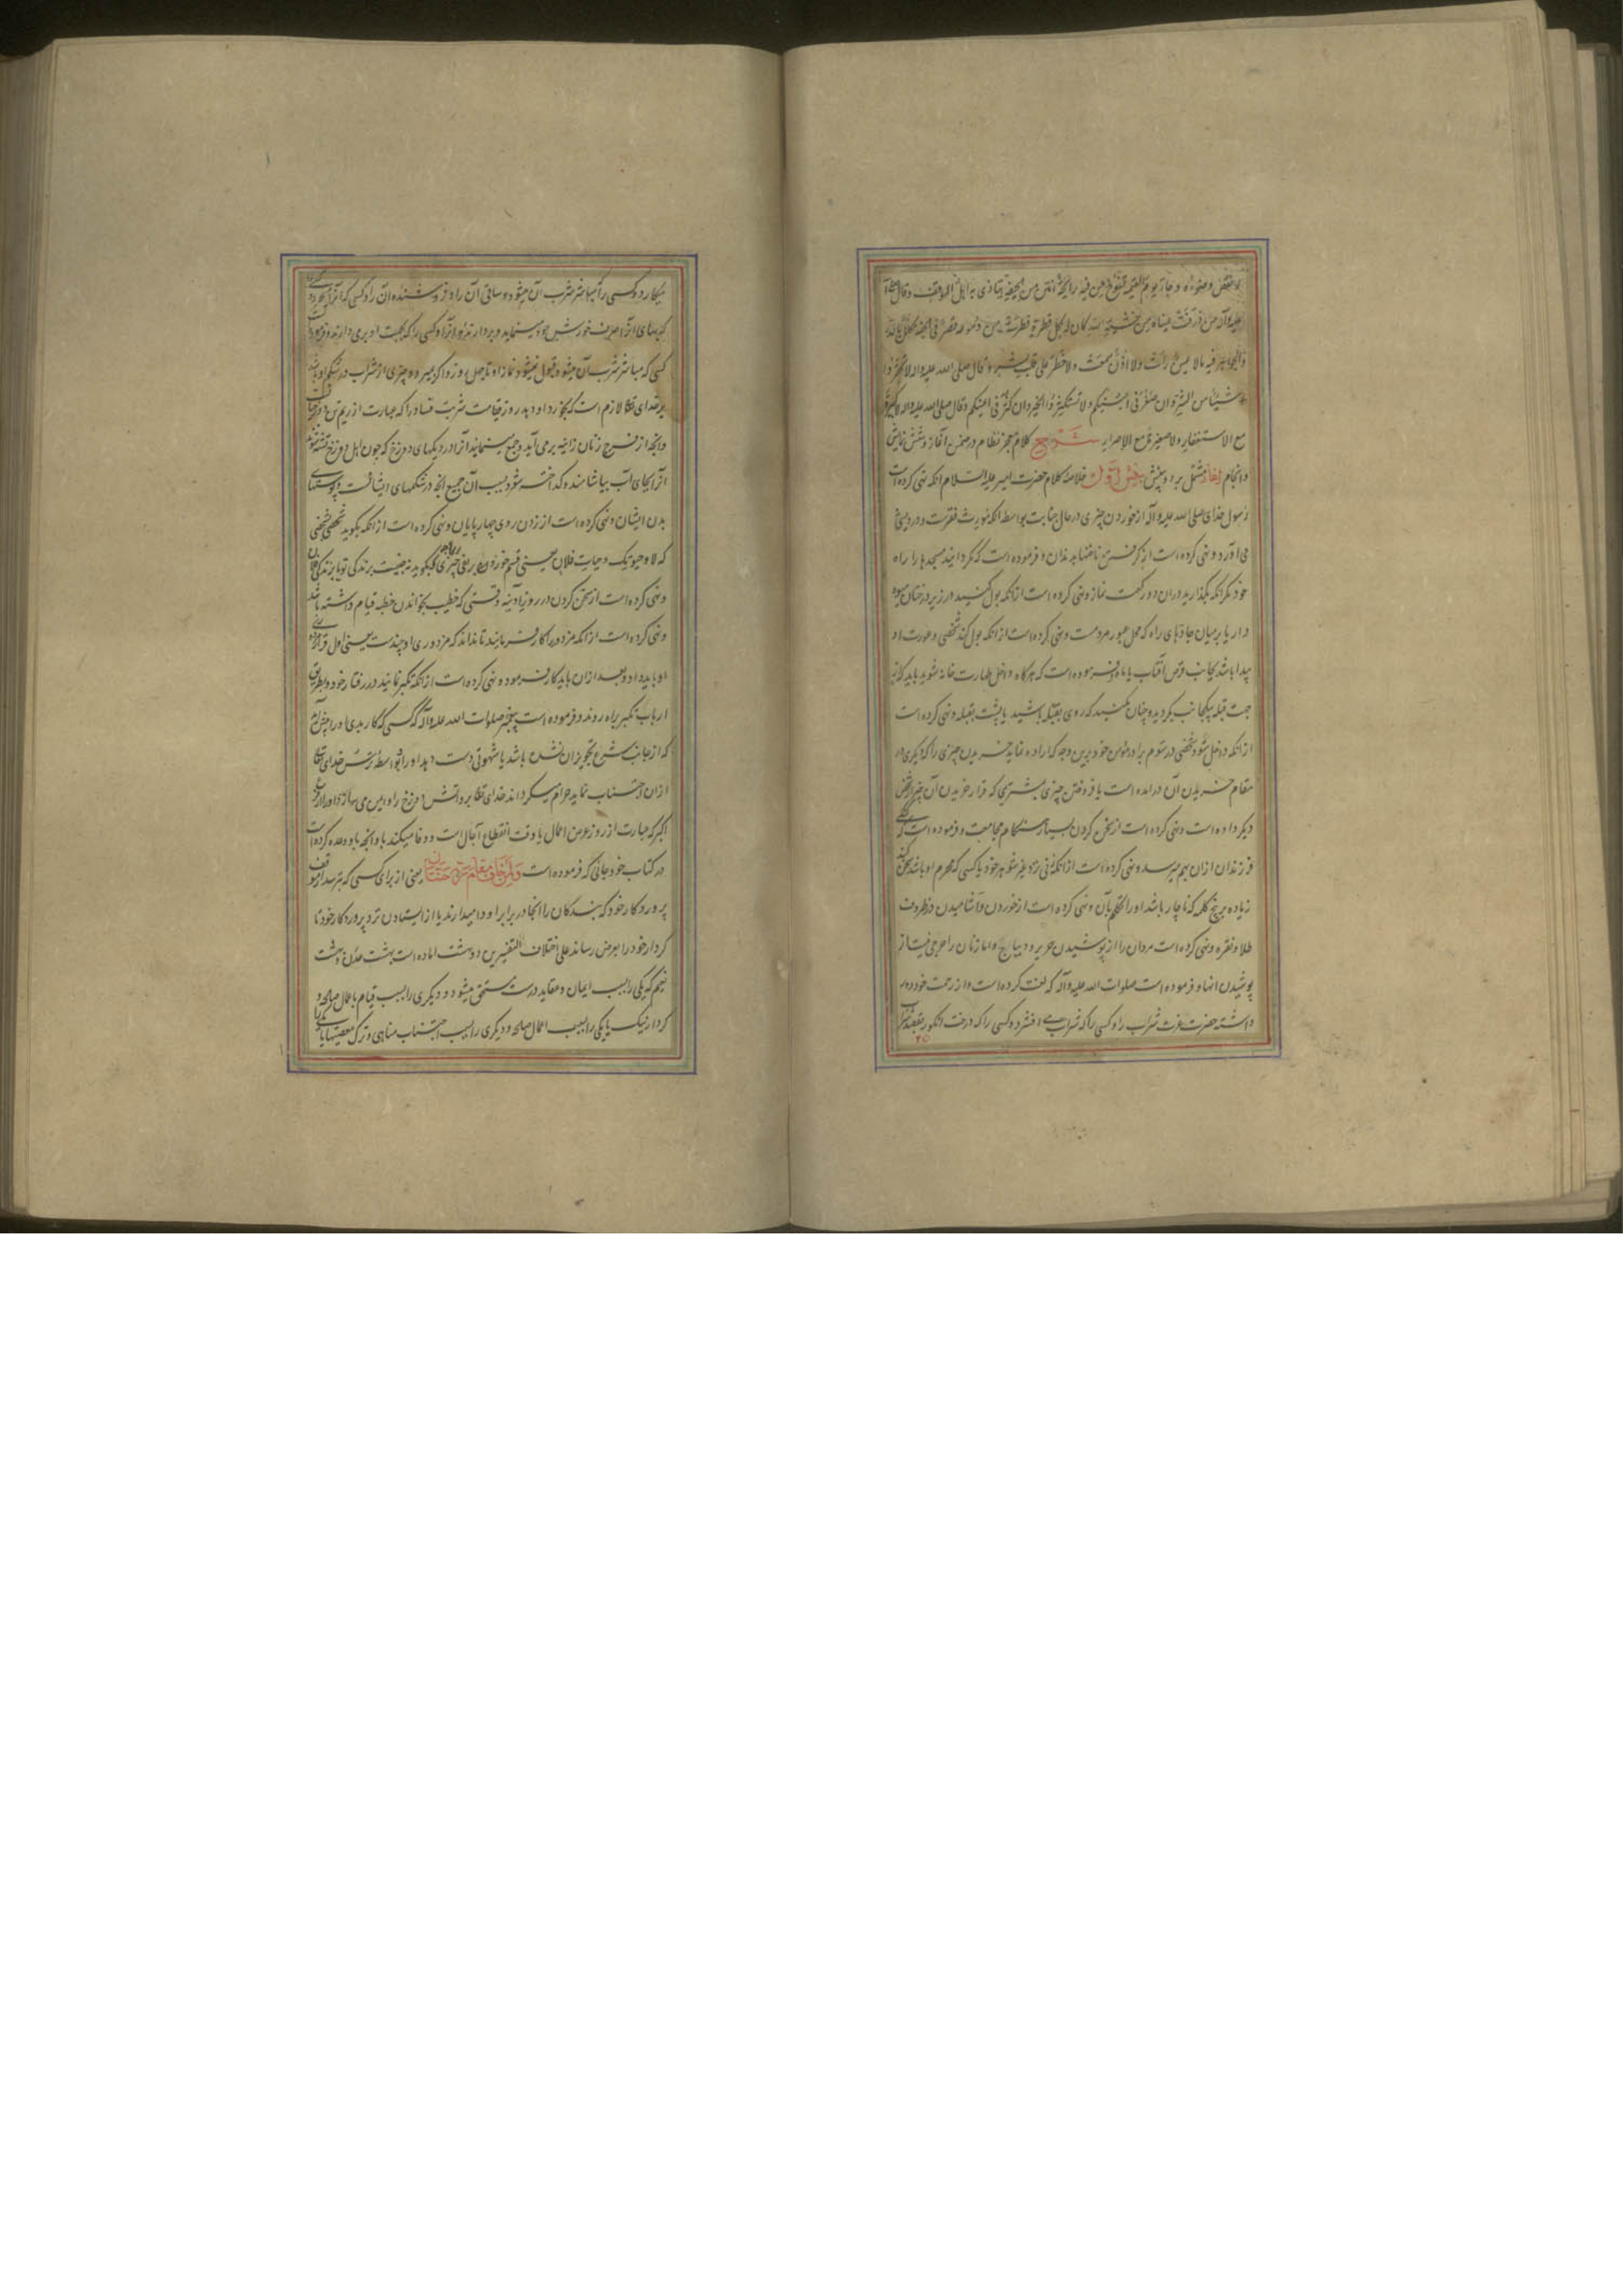 وضوؤه و جاء یوم القیمة من فیه رایحة انتن من الجیفة یتاذی به اهل الموقف و قال صلی الله
علیه و آله من ذرفت عیناه من خشیة الله کان له بکل قطرة قطرت من دموعه قصر فی الجنة مکلل بالدر
و الجواهر فیه ما لا عین رأت و لا اذن سمعت و لا خطر علی قلب بشر و قال صلی الله علیه و اله لا تحقروا
شیئا من الشر و ان صغر فی اعینکم و لا تستکثروا الخیر و ان کثر فی اعینکم و قال صلی الله علیه و اله لا کبیرة
مع الاستغفار و لا صغیرة مع الاصرار شرح کلام معجز نظام در ضمن آغاز و شش نمایش
و انجام آغاز مشتمل بر دو بخش بخش اول خلاصه کلام حضرت امیر علیه السلام انکه نهی کرده است
رسول خدای صلی الله علیه و آله از خوردن چیزی در حال جنابت بواسطه انکه مورث فقرست و درویشی
می آورد و نهی کرده است از کرفتن ناخنها به دندان و فرموده است که مکردانید مسجدها را راه
خود مکر انکه بکذارید در ان دو رکعت نماز و نهی کرده است از انکه بول کنید در زیر درختان میوه
دار یا بر میان جادهای راه که محل عبور مردمست و نهی کرده است از انکه بول کند شخصی و عورت او
پیدا باشد بجانب قرص آفتاب یا ماه و فرموده است که هرکاه داخل طهارت خانه شوید باید که از
جهت قبله بیکجانب بکردید و چنان مکنید که روی بقبله باشید یا پشت بقبله و نهی کرده است
از انکه داخل شود شخصی در سوم برادر مؤمن خود برین وجه که اراده نماید خریدن چیزی را که دیکری در
مقام خریدن آن در امده است یا فروختن چیزی بمشتری که قرار خریدن آن چیز از شخص
دیکر داده است و نهی کرده است از سخن کردن بسیار هنکام مجامعت و فرموده است که
فرزندان ازان بهم میرسد و نهی کرده است از انکه زنی نزد غیر شوهر خود یا کسی که محرم او باشد سخن کند
زیاده بر پنج کلمه که ناچار باشد او را تکلم بآن و نهی کرده است از خوردن و آشامیدن در ظروف
طلا و نقره و نهی کرده است مردان را از پوشیدن حریر و دیباج و اما زنان را حرجی نیست از
پوشیدن انها و فرموده است صلوات الله علیه و آله که لعنت کرده است و از رحمت خود دور
داشته حضرت عزت شراب را و کسی را که شراب می افشرد و کسی را که درخت انکور بقصد شراب
۲۵
میکارد و کسی را که مباشر شرب آن میشود و ساقی آن را و فروشنده آن را و کسی که انرا میخرد
که بهای انرا صرف خورش خود مینماید و بردارنده انرا و کسی را که بجهت او بر می دارند و فرموده است
کسی که مباشر شرب آن میشود قبول نمیشود نماز او تا چهل روز و اکر بمیرد و چیزی از شراب در شکم او باشد
بر خدای تعالی لازم است که بخورد او دهد روز قیامت شربت فساد را که عبارت از ریم تن دوزخیانست
و انچه از فرج زنان زانیه بر می آید و جمع مینماید انرا در دیکهای دوزخ که چون اهل دوزخ تشنه شوند
انرا بجای آب بیاشامند و کداخته شود بسبب آن جمیع انچه در شکمهای ایشانست و پوستهای
بدن ایشان و نهی کرده است از زدن روی چهارپایان و نهی کرده است از انکه بکوید شخصی شخصی را
که لا و حیوتک و حیات فلان یعنی قسم خوردن بر نفی چیزی بکوید نه چنین است بزندکی تو یا بزندکی فلان
و نهی کرده است از سخن کردن در روز آدینه وقتی که خطیب بخواندن خطبه قیام داشته باشد
و نهی کرده است از انکه مزدور را کار فرمایند تا نداند که مزدوری او چندست یعنی اول قرار مزد
او باید داد و بعد ازان باید کار فرمود و نهی کرده است از انکه تکبر نمایند در رفتار خود و بطریق
ارباب تکبر براه روند و فرموده است پیغمبر صلوات الله علیه و آله که کسی که کار بدی او را پیش آید
که از جانب شرع تجویز ان نشده باشد یا شهوتی دست دهد او را و بواسطه ترس خدای تعالی
ازان اجتناب نماید حرام میکرداند خدای تعالی بر و اتش دوزخ را و ایمن می سازد او را از فزع
اکبر که عبارت از روز عرض اعمال یا وقت انقطاع آجال است و وفا میکند با و انچه باو وعده کرده است
در کتاب خود جائی که فرموده است ولمن خاف مقام ربه جنتان یعنی از برای کسی که بترسد از موقف
پروردکار خود که بندکان را انجا در برابر او وا میدارند یا از ایستادن نزد پروردکار خود تا
کردار خود را بعرض رساند علی اختلاف التفسیرین دو بهشت اماده است بهشت عدن و بهشت
نعیم که یکی را بسبب ایمان و عقاید درست مستحق میشود و دیکری را بسبب قیام باعمال صالحه و
کردار نیک یا یکی را بسبب اعمال صالحه و دیکری را بسبب اجتناب مناهی و ترک معصیتها یا